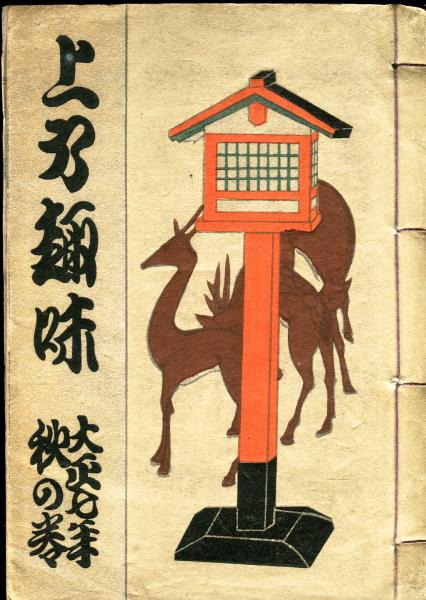 上方趣味
大正七年
秋の巻